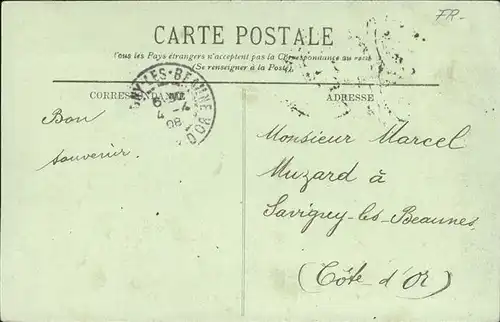 FR-
CARTE POSTALE
Tous les Pays étrangers n'acceptent pas la Correspondance au recto
(Se renseigner à la Poste).
CORRESPONDANCE
ADRESSE
-BEAUNE
4
08
D'OR
Bon
souvenir.
Monsieur Marcel
Muzard à
Savigny-les-Beaunes
(Côte d'Or)